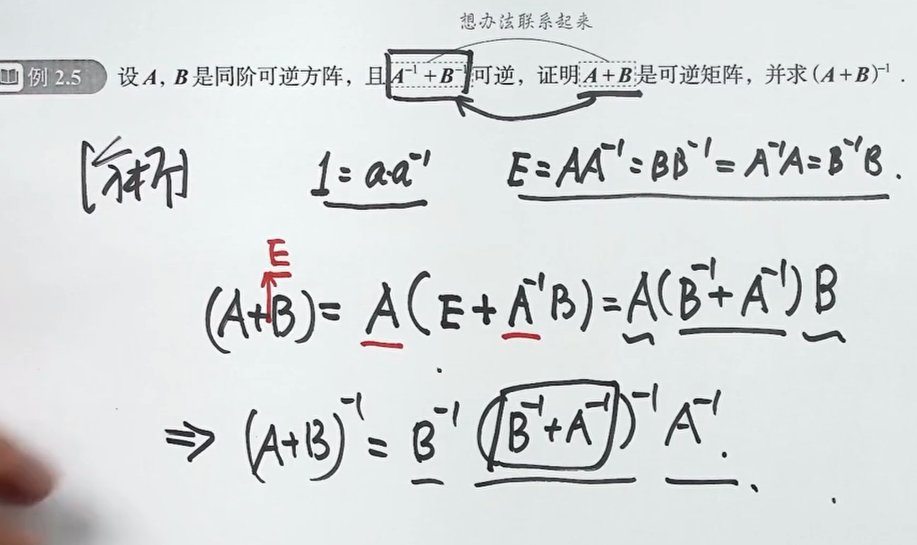 想办法联系起来
例 2.5 设 A, B 是同阶可逆方阵，且 A⁻¹ + B⁻¹ 可逆，证明 A + B 是可逆矩阵，并求 (A + B)⁻¹ .
[分析] 1 = a·a⁻¹ E = AA⁻¹ = BB⁻¹ = A⁻¹A = B⁻¹B .
E
(A+B) = A(E + A⁻¹B) = A(B⁻¹ + A⁻¹)B
⇒ (A+B)⁻¹ = B⁻¹(B⁻¹+A⁻¹)⁻¹A⁻¹.